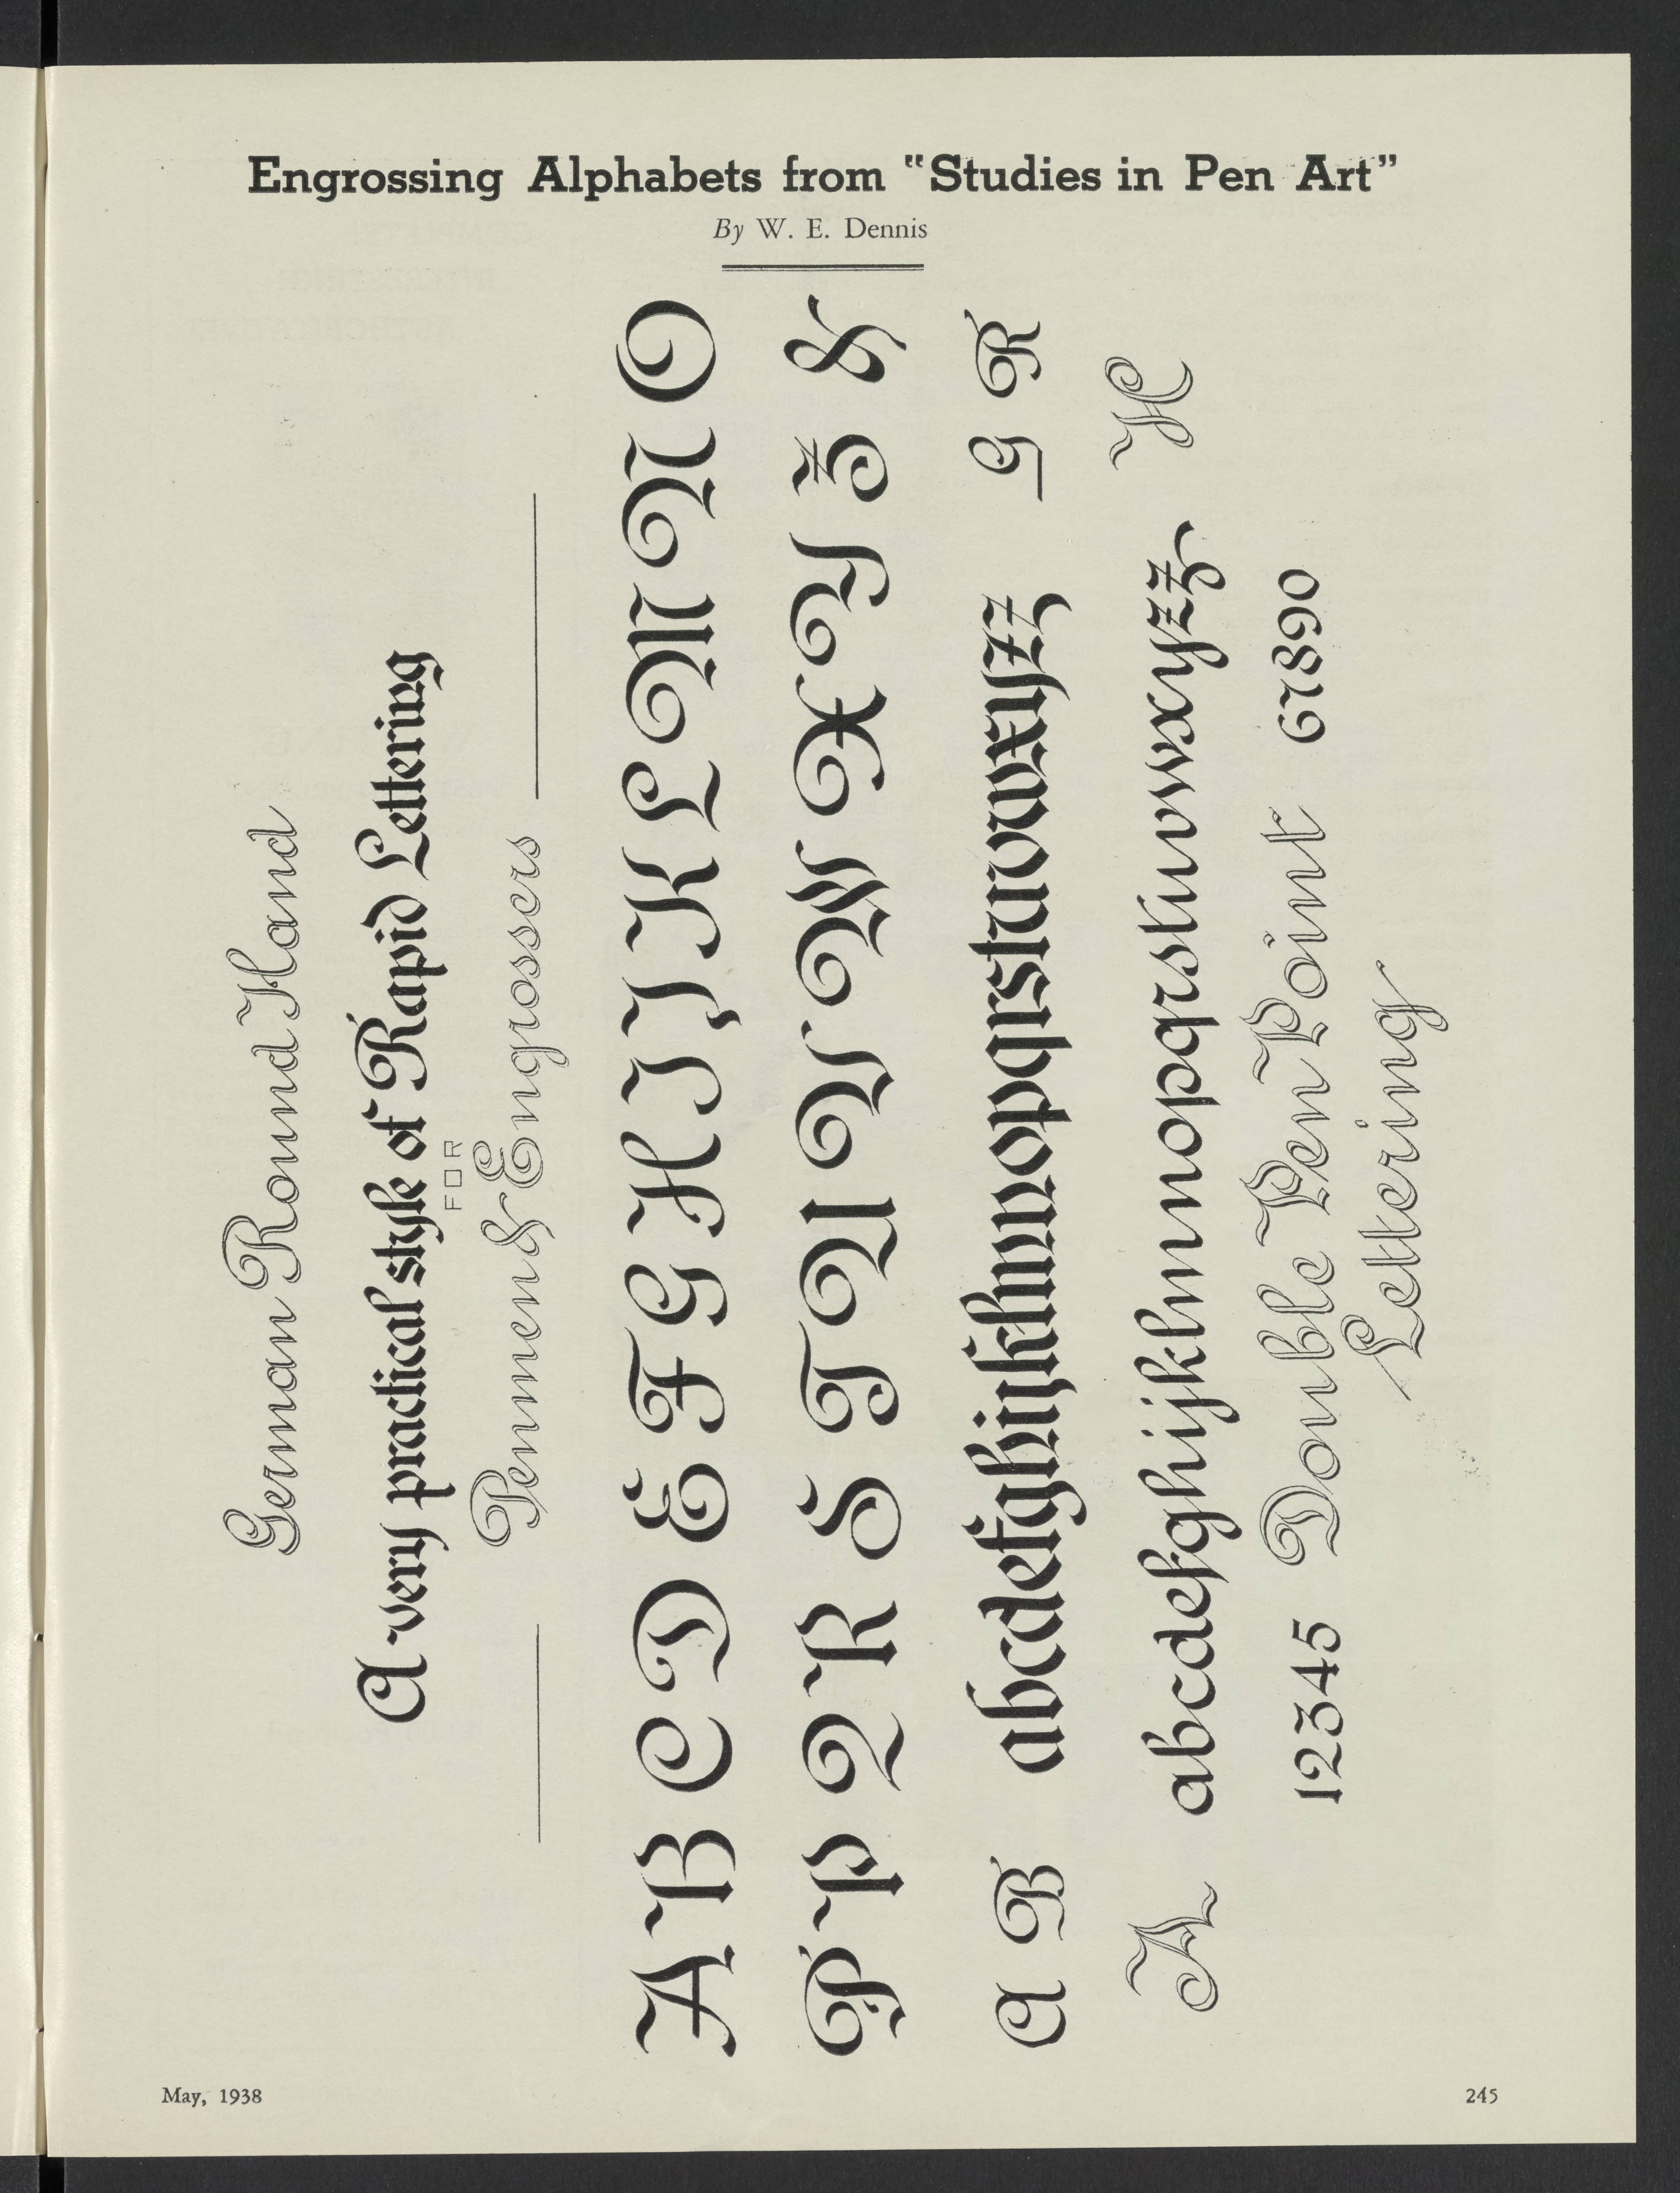 Engrossing Alphabets from "Studies in Pen Art"
By W. E. Dennis
German Round Hand
A very practical style of Rapid Lettering
FOR
Penmen & Engrossers
A B C D E F G H I J K L M N O
P P Q R S T U V W X Y Z &
A B abcdefghijklmnopqrstuvwxyzz G R
A abcdefghijklmnopqrstuvwxyzz H
12345 Double Pen Point 67890
Lettering
May, 1938
245